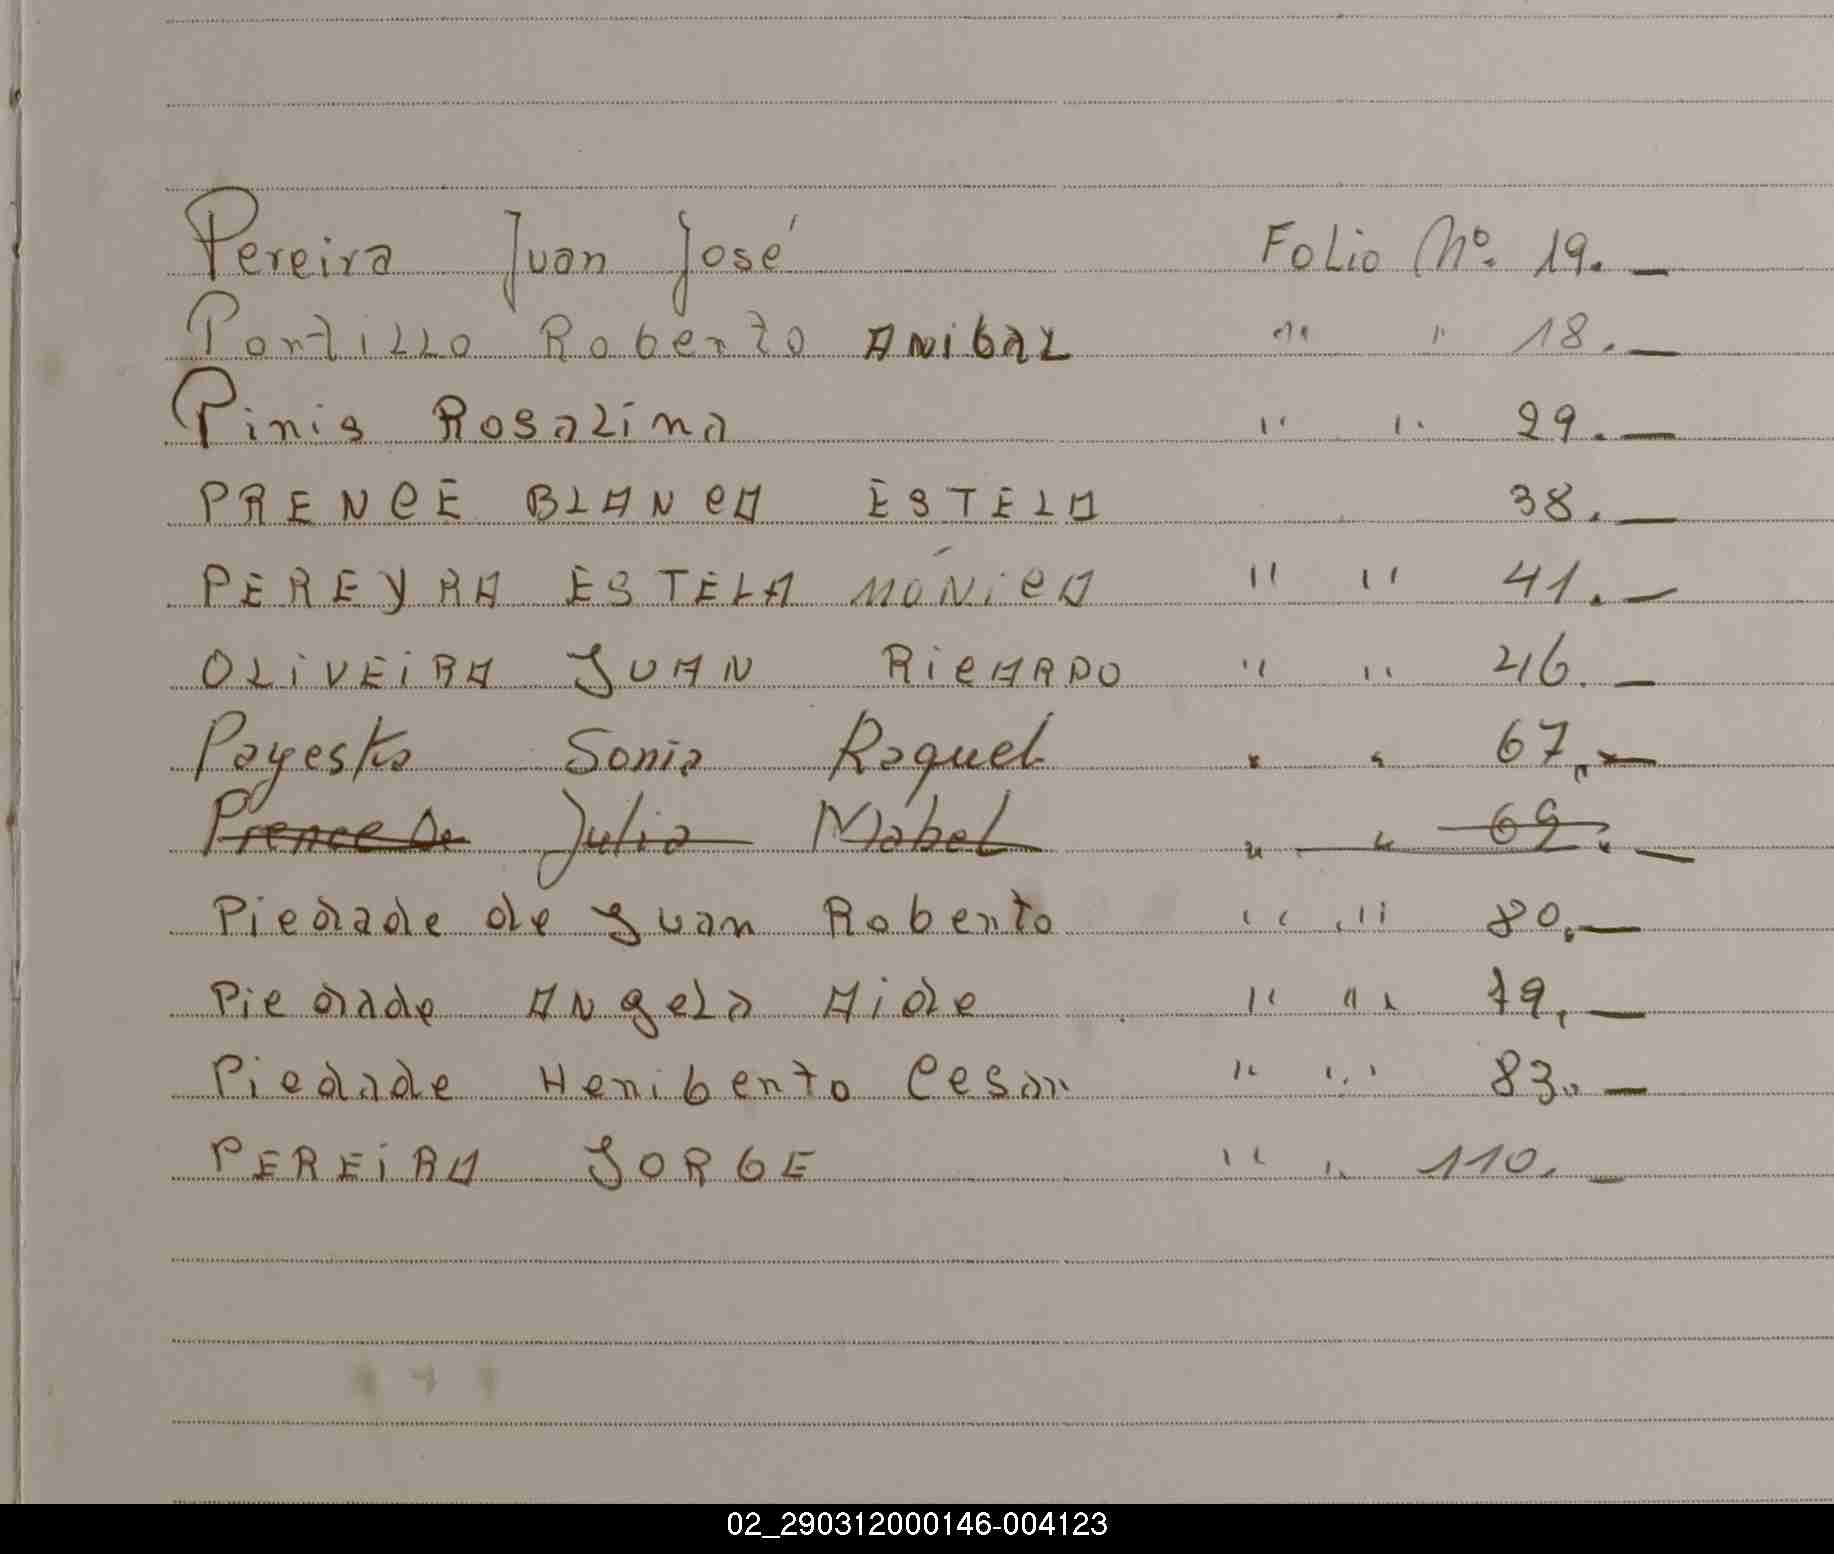 Pereira Juan José Folio Nº. 19. —
Portillo Roberto Anibal " " 18. —
Pinis Rosalina " " 29. —
PRENCE BLANCA ESTELA 38. —
PEREYRA ESTELA MÓNICA " " 41. —
OLIVEIRA JUAN RICARDO " " 46. —
Payeska Sonia Raquel " " 67. —
Prence De Julia Mabel " " 69. —
Piedade de Juan Roberto " " 80. —
Piedade Angela Aide " " 79. —
Piedade Heriberto Cesar " " 83. —
PEREIRA JORGE " " 110. —
02_290312000146-004123